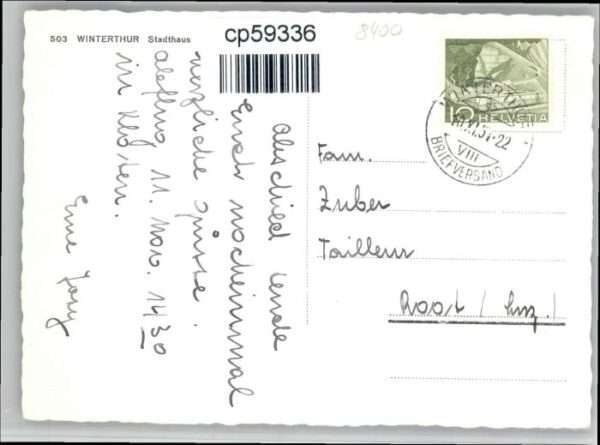 503 WINTERTHUR Stadthaus
cp59336
8400
10 HELVETIA
WINTERTHUR
51-22
VIII
BRIEFVERSAND
Abschied sende
Euch nocheinmal
herzliche Grüsse.
Abflug 11. Nov. 14 30
in Kloten.
Fam.
Zuber
Tailleur
Root / Luz.!